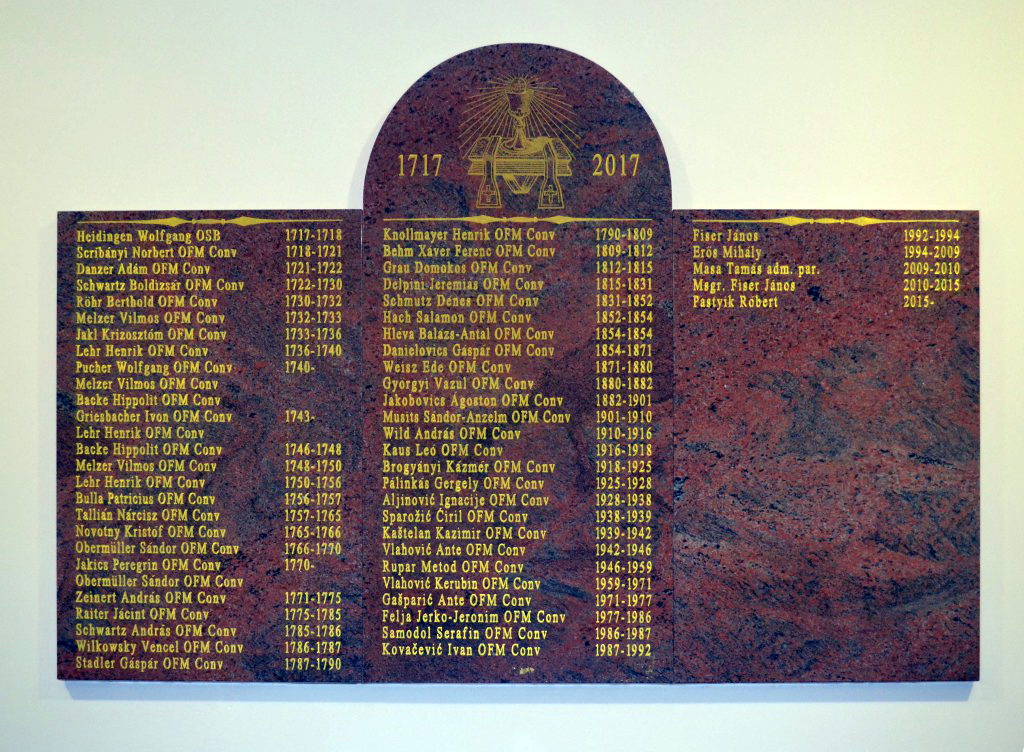 1717 2017
Heidingen Wolfgang OSB 1717-1718
Scribányi Norbert OFM Conv 1718-1721
Danzer Ádám OFM Conv 1721-1722
Schwartz Boldizsár OFM Conv 1722-1730
Röhr Berthold OFM Conv 1730-1732
Melzer Vilmos OFM Conv 1732-1733
Jakl Krizosztóm OFM Conv 1733-1736
Lehr Henrik OFM Conv 1736-1740
Pucher Wolfgang OFM Conv 1740-
Melzer Vilmos OFM Conv
Backe Hippolit OFM Conv
Griesbacher Ivon OFM Conv 1743-
Lehr Henrik OFM Conv
Backe Hippolit OFM Conv 1746-1748
Melzer Vilmos OFM Conv 1748-1750
Lehr Henrik OFM Conv 1750-1756
Bulla Patricius OFM Conv 1756-1757
Tallián Nárcisz OFM Conv 1757-1765
Novotny Kristóf OFM Conv 1765-1766
Obermüller Sándor OFM Conv 1766-1770
Jakics Peregrin OFM Conv 1770-
Obermüller Sándor OFM Conv
Zeinert András OFM Conv 1771-1775
Raiter Jácint OFM Conv 1775-1785
Schwartz András OFM Conv 1785-1786
Wilkowsky Vencel OFM Conv 1786-1787
Stadler Gáspár OFM Conv 1787-1790
Knollmayer Henrik OFM Conv 1790-1809
Behm Xáver Ferenc OFM Conv 1809-1812
Grau Domokos OFM Conv 1812-1815
Delpini Jeremiás OFM Conv 1815-1831
Schmutz Dénes OFM Conv 1831-1852
Hach Salamon OFM Conv 1852-1854
Hleva Balázs-Antal OFM Conv 1854-1854
Danielovics Gáspár OFM Conv 1854-1871
Weisz Ede OFM Conv 1871-1880
Györgyi Vazul OFM Conv 1880-1882
Jakobovics Ágoston OFM Conv 1882-1901
Musits Sándor-Anzelm OFM Conv 1901-1910
Wild András OFM Conv 1910-1916
Kaus Leó OFM Conv 1916-1918
Brogyányi Kázmér OFM Conv 1918-1925
Pálinkás Gergely OFM Conv 1925-1928
Aljinović Ignacije OFM Conv 1928-1938
Sparožić Ćiril OFM Conv 1938-1939
Kaštelan Kazimir OFM Conv 1939-1942
Vlahović Ante OFM Conv 1942-1946
Rupar Metod OFM Conv 1946-1959
Vlahović Kerubin OFM Conv 1959-1971
Gašparić Ante OFM Conv 1971-1977
Felja Jerko-Jeronim OFM Conv 1977-1986
Samodol Serafin OFM Conv 1986-1987
Kovačević Ivan OFM Conv 1987-1992
Fiser János 1992-1994
Erős Mihály 1994-2009
Masa Tamás adm. par. 2009-2010
Msgr. Fiser János 2010-2015
Pastyik Róbert 2015-